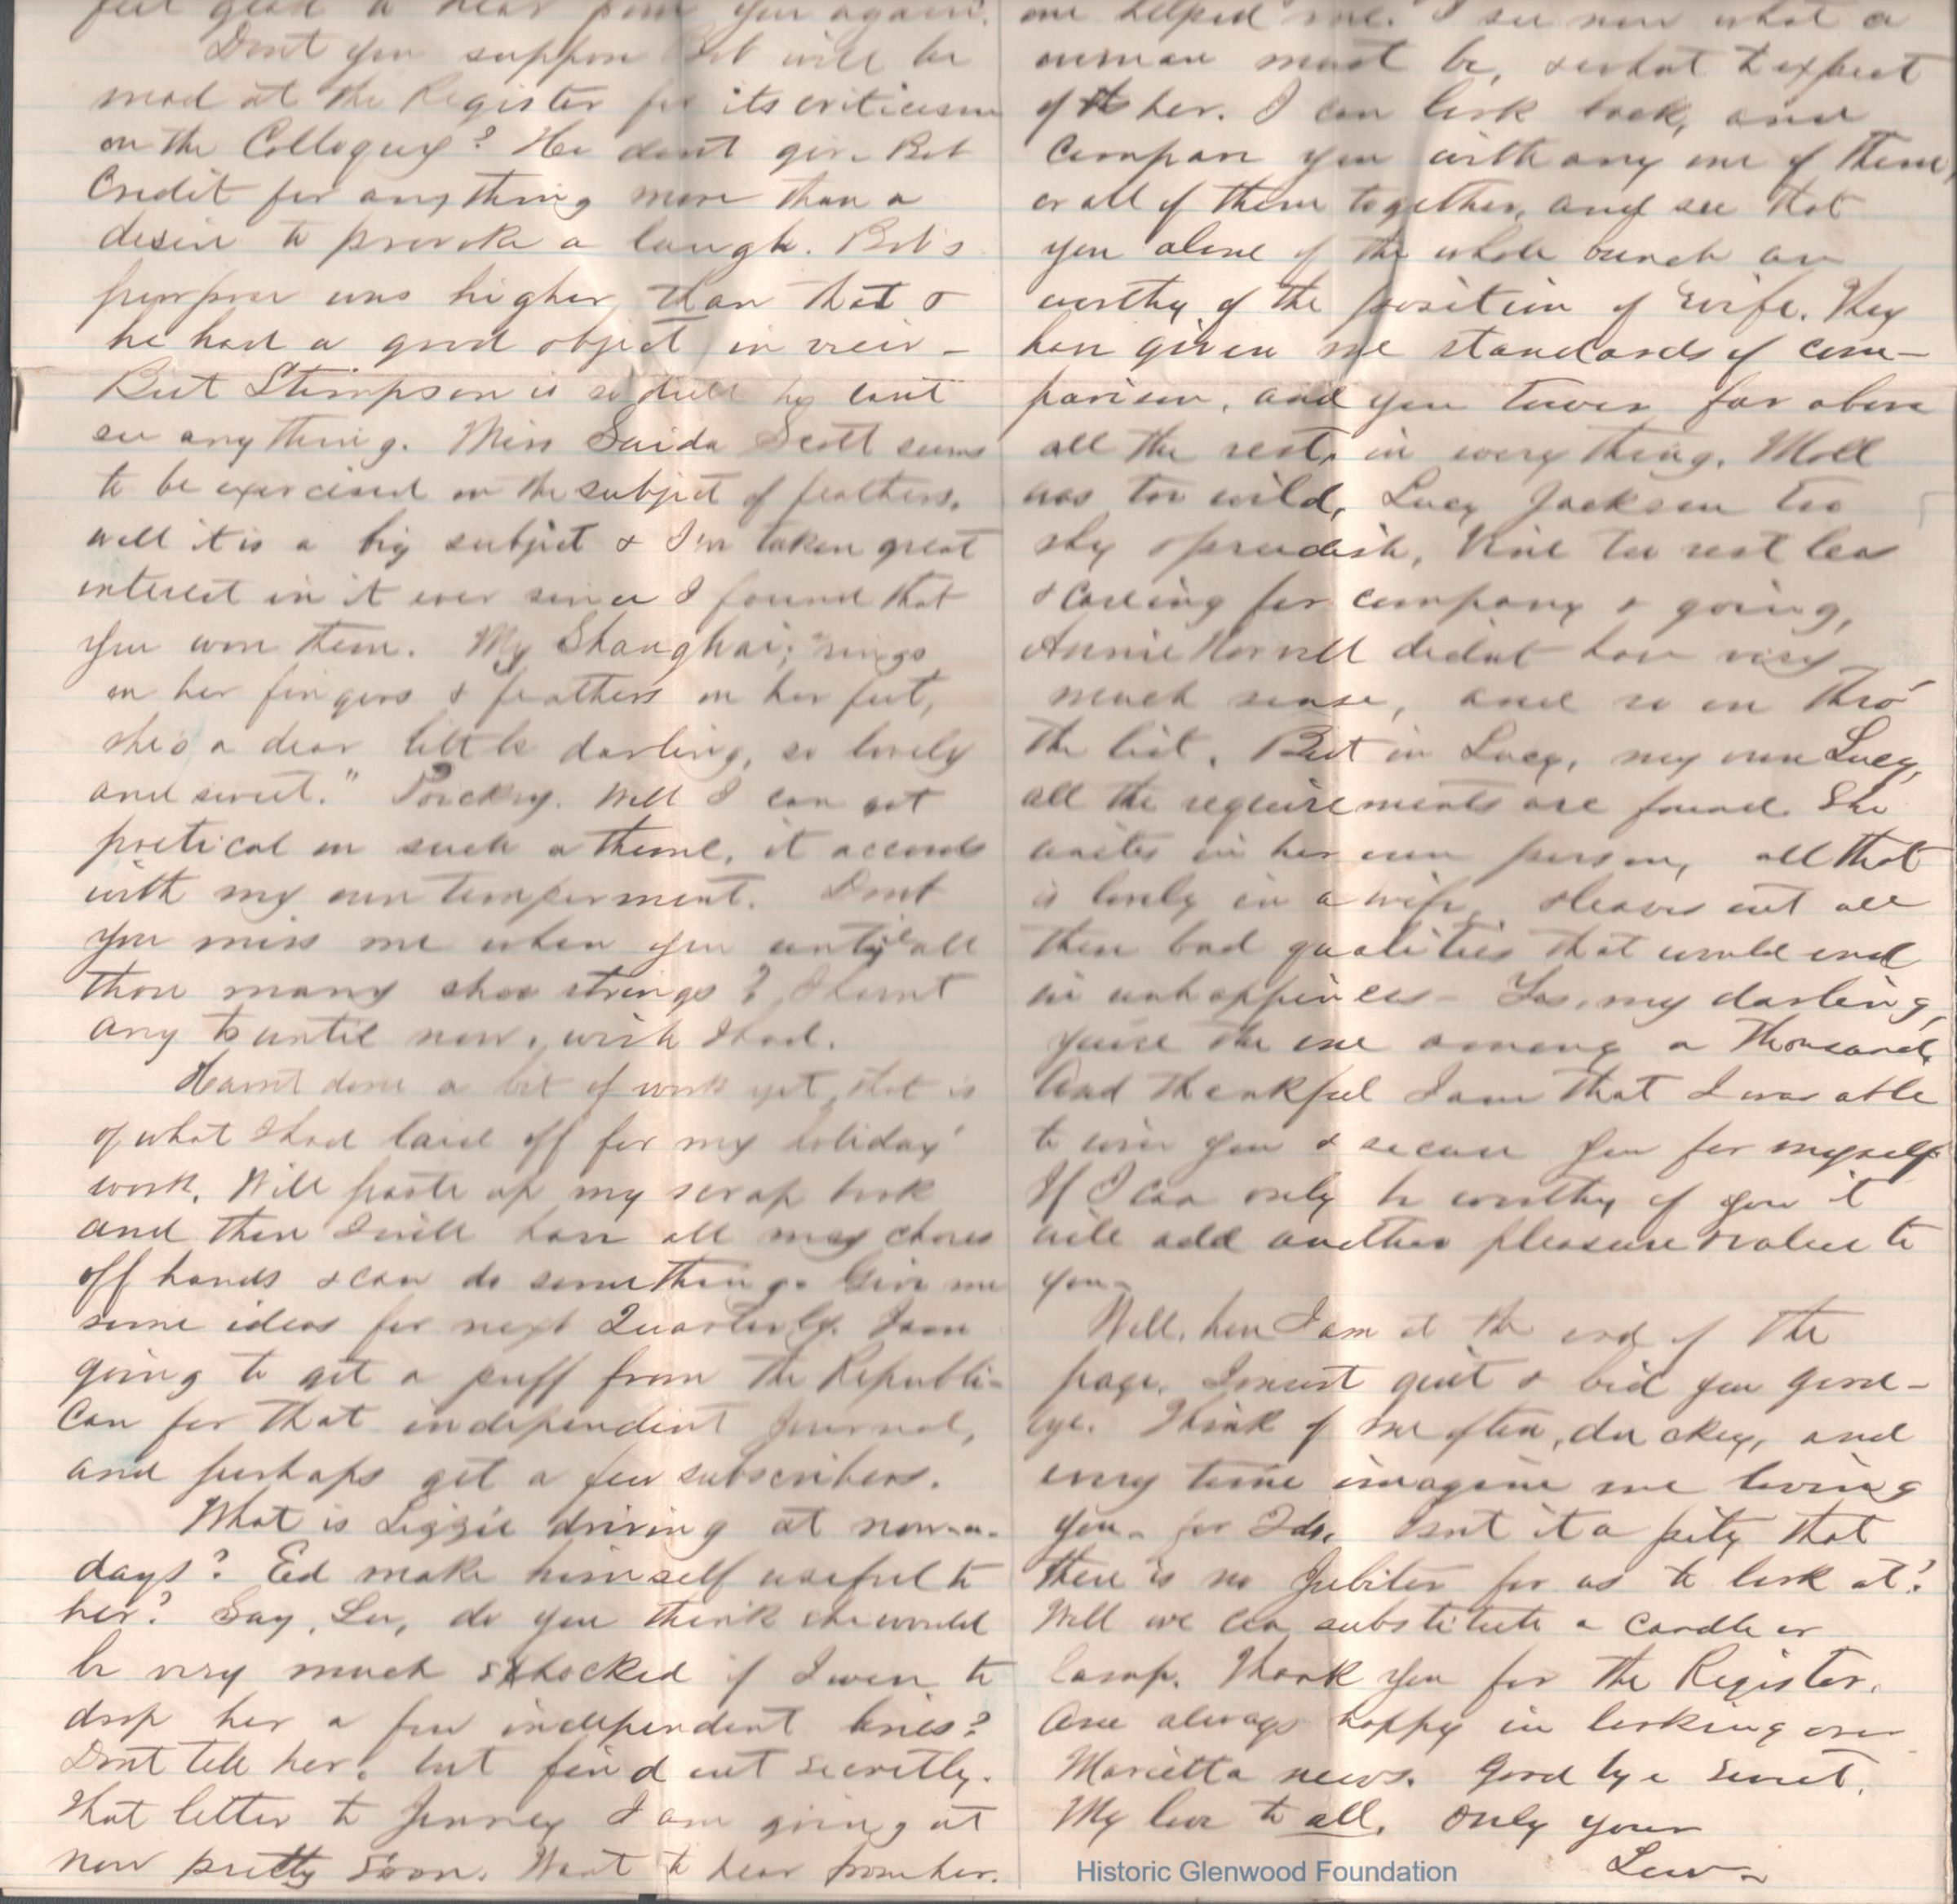 feel glad to hear from you again.
Dont you suppose Bob will be
mad at the Register for its criticism
on the Colloquy? He dont give Bob
Credit for anything more than a
desire to provoke a laugh. Bob's
purpose was higher than that &
he had a good object in view -
But Stimpson is so dull he cant
see anything. Miss Saida Scott seems
to be exercised on the subject of feathers.
well it is a big subject & I've taken great
interest in it ever since I found that
you wore them. My Shanghai; "rings
on her fingers & feathers on her feet,
she's a dear little darling, so lovely
and sweet." Poickry. Well I can get
poetical on such a theme, it accords
with my own temperment. Dont
you miss me when you untie all
those many shoe strings? I havnt
any to until now, wish I had.
Havnt done a bit of work yet, that is
of what I had laid off for my holiday
work. Will paste up my scrap book
and then I will have all my chores
off hands & can do something. Give me
some ideas for next Quarterly. I am
going to get a puff from the Republi-
can for that independent Journal,
and perhaps get a few subscribers.
What is Lizzie driving at now-a-
days? Ed make himself useful to
her? Say, Lu, do you think she would
be very much shocked if I were to
drop her a few independent lines?
Dont tell her, but find out secretly.
That letter to Jenney I am going at
now pretty soon. Want to hear from her.
one helped me. I see now what a
woman must be, & what to expect
of her. I can look back, and
compare you with any one of them,
or all of them together, and see that
you alone of the whole bunch are
worthy of the position of wife. They
have given me standards of com-
parison, and you tower far above
all the rest, in every thing. Moll
was too wild, Lucy Jackson too
shy & prudish, too restless
& caring for company & going,
Annie didnt have very
much sense, and so on thro'
the list. But in Lucy, my own Lucy,
all the requirements are found. She
unites in her own person, all that
is lovely in a wife, & leaves out all
those bad qualities that would end
in unhappiness - Yes, my darling,
you're the one among a thousand,
And thankful I am that I was able
to win you & secure you for myself.
If I can only be worthy of you it
will add another pleasure & value to
you.
Well, here I am at the end of the
page. I must quit & bid you good-
bye. Think of me often, duckey, and
every time imagine me loving
you - for I do. Isnt it a pity that
there is no Jubiter for us to look at?
Well we can substitute a candle or
lamp. Thank you for the Register.
Am always happy in looking over
Marietta news. Good bye sweet.
My love to all. Only your
Lew -
Historic Glenwood Foundation